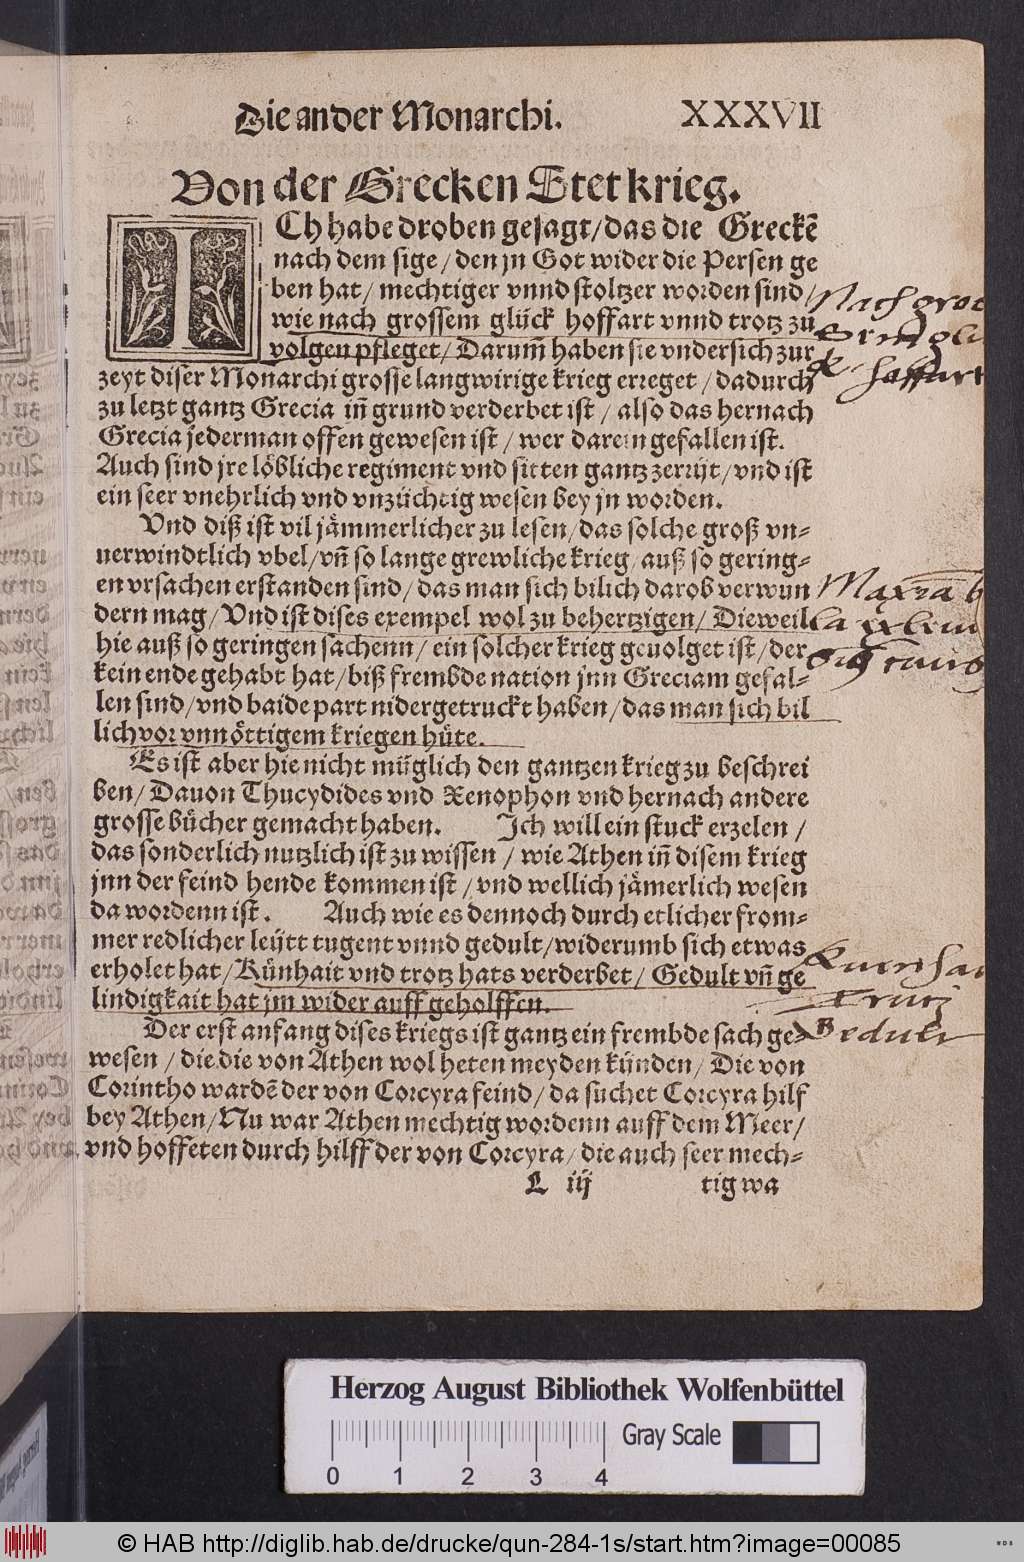 Die ander Monarchi. XXXVII
Von der Grecken Stet krieg.
ICh habe droben gesagt/das die Greckẽ
nach dem sige/den jn Got wider die Persen ge
ben hat/mechtiger vnnd stoltzer worden sind/
wie nach grossem glück hoffart vnnd trotz zu
volgen pfleget/Darum̃ haben sie vndersich zur
zeyt diser Monarchi grosse langwirige krieg erreget/dadurch
zu letzt gantz Grecia in̄ grund verderbet ist/also das hernach
Grecia jederman offen gewesen ist/wer darein gefallen ist.
Auch sind jre löbliche regiment vnd sitten gantz zerrüt/vnd ist
ein seer vnehrlich vnd vnzüchtig wesen bey jn worden.
Vnd diß ist vil jämmerlicher zu lesen/das solche groß vn-
uerwindtlich vbel/vn̄ so lange grewliche krieg/auß so gering-
en vrsachen erstanden sind/das man sich bilich darob verwun
dern mag/Vnd ist dises exempel wol zu behertzigen/Dieweil
hie auß so geringen sachenn/ein solcher krieg geuolget ist/der
kein ende gehabt hat/biß frembde nation jnn Greciam gefal-
len sind/vnd baide part nidergetruckt haben/das man sich bil
lich vor vnnöttigem kriegen hüte.
Es ist aber hie nicht müglich den gantzen krieg zu beschrei
ben/Dauon Thucydides vnd Xenophon vnd hernach andere
grosse bücher gemacht haben. Ich will ein stuck erzelen/
das sonderlich nutzlich ist zu wissen/wie Athen in̄ disem krieg
jnn der feind hende kommen ist/vnd wellich jämerlich wesen
da wordenn ist. Auch wie es dennoch durch etlicher from-
mer redlicher leütt tugent vnnd gedult/widerumb sich etwas
erholet hat/Künhait vnd trotz hats verderbet/Gedult vn̄ ge
lindigkait hat jm wider auff geholffen.
Der erst anfang dises kriegs ist gantz ein frembde sach ge-
wesen/die die von Athen wol heten meyden künden/Die von
Corintho wardẽ der von Corcyra feind/da suchet Corcyra hilf
bey Athen/Nu war Athen mechtig wordenn auff dem Meer/
vnd hoffeten durch hilff der von Corcyra/die auch seer mech-
L iij tig wa
Nach gros
hoffart
Trutz
Gedult
Herzog August Bibliothek Wolfenbüttel
0 1 2 3 4 Gray Scale
© HAB http://diglib.hab.de/drucke/qun-284-1s/start.htm?image=00085